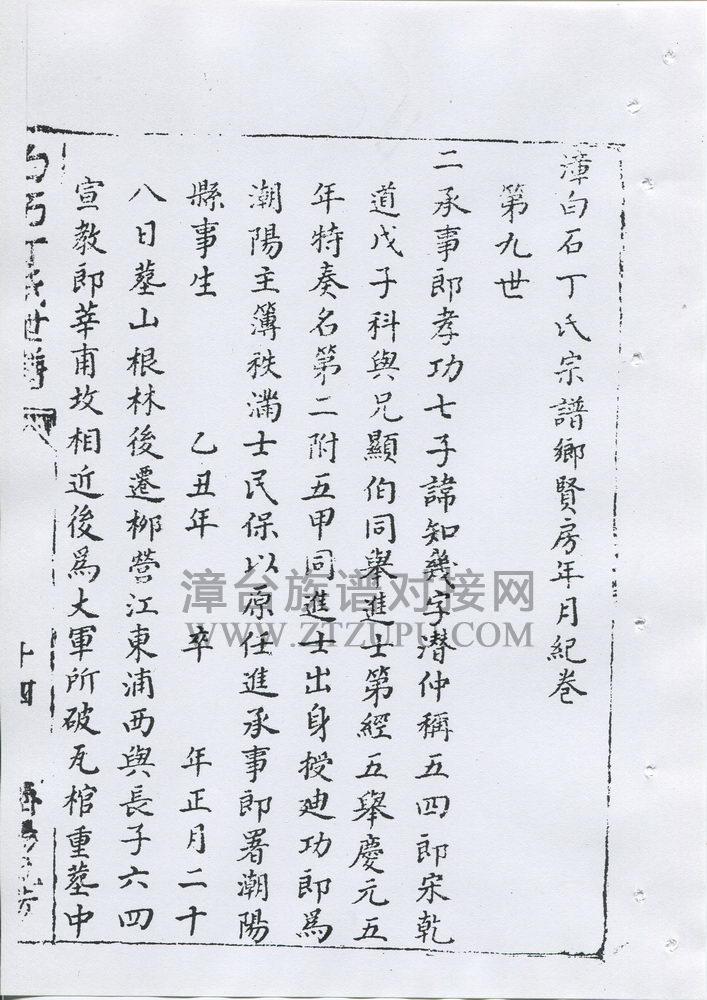 漳白石丁氏宗譜鄉賢房年月紀卷
第九世
二承事郎孝功七子諱知幾字潛仲稱五四郎宋乾
道戊子科與兄顯伯同舉進士第經五舉慶元五
年特奏名第二附五甲同進士出身授廸功郎為
潮陽主簿秩滿士民保以原任進承事郎署潮陽
縣事生 乙丑年 卒 年正月二十
八日墓山根林後遷柳營江東浦西與長子六四
宣教郎莘甫坟相近後爲大軍所破瓦棺重墓中
白石丁氏世譜
十四
漳台族谱对接网
WWW.ZTZUPU.COM